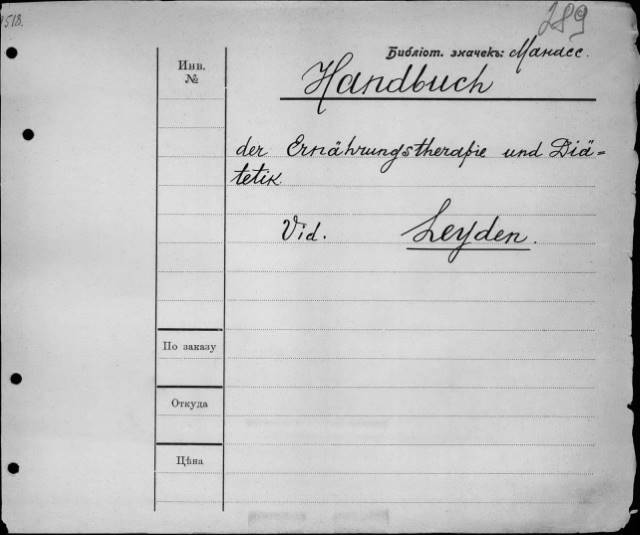 1518.
289
Библіот. значекъ: Манасс.
Инв.
№
Handbuch
der Ernährungstherapie und Diä=
tetik.
Vid. Leyden.
По заказу
Откуда
Цѣна